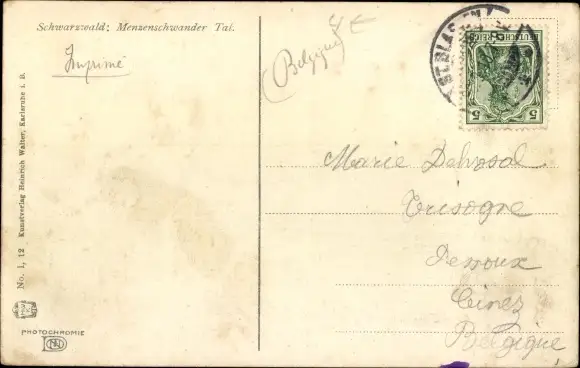 Schwarzwald: Menzenschwander Tal.
Imprimé
(Belgique)
ST. BLASIEN
DEUTSCHES REICH
5 5
Marie Dehosal
Trisogne
Pessoux
Ciney
Belgique
No. I, 12 Kunstverlag Heinrich Walter, Karlsruhe i. B.
PHOTOCHROMIE